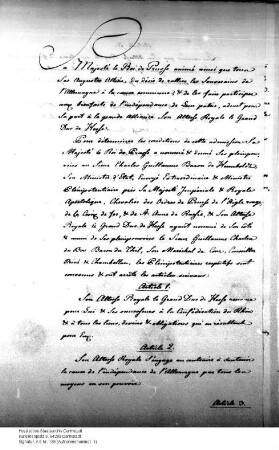 Sa Majesté le Roi de Prusse animé ainsi que tous
Ses Augustes Alliés, du désir de rallier les Souverains de
l'Allemagne à la cause commune, & de les faire participer
aux bienfaits de l'indépendance de leur patrie, admet pour
Sa part à la grande Alliance Son Altesse Royale le Grand
Duc de Hesse.
Pour déterminer les conditions de cette admission Sa
Majesté le Roi de Prusse a nommé & muni des pleinspou-
voirs au Sieur Charles Guillaume Baron de Humboldt,
Son Ministre d'Etat, Envoyé Extraordinaire & Ministre
Plénipotentiaire près Sa Majesté Impériale & Royale
Apostolique, Chevalier des Ordres de Prusse de l'Aigle rouge
de la Croix de fer, & de St. Anne de Russie, & Son Altesse
Royale le Grand Duc de Hesse ayant nommé de Son côté
& muni de Ses pleinspouvoirs le Sieur Guillaume Charles
du Bos Baron du Thil, Son
Privé & Chambellan, les Plénipotentiaires respectifs sont
convenus & ont arrêté les articles suivans
Article 1.
Son Altesse Royale le Grand Duc de Hesse renonce
pour Lui & Ses successeurs à la Confédération du Rhin
& à tous les liens, devoirs & obligations qui en résultent
pour Lui.
Article 2.
Son Altesse Royale S'engage au contraire à soutenir
la cause de l'indépendance de l'Allemagne par tous les
moyens en son pouvoir.
Art. 3.
Hessisches Staatsarchiv Darmstadt
Karolinenplatz 3, 64289 Darmstadt